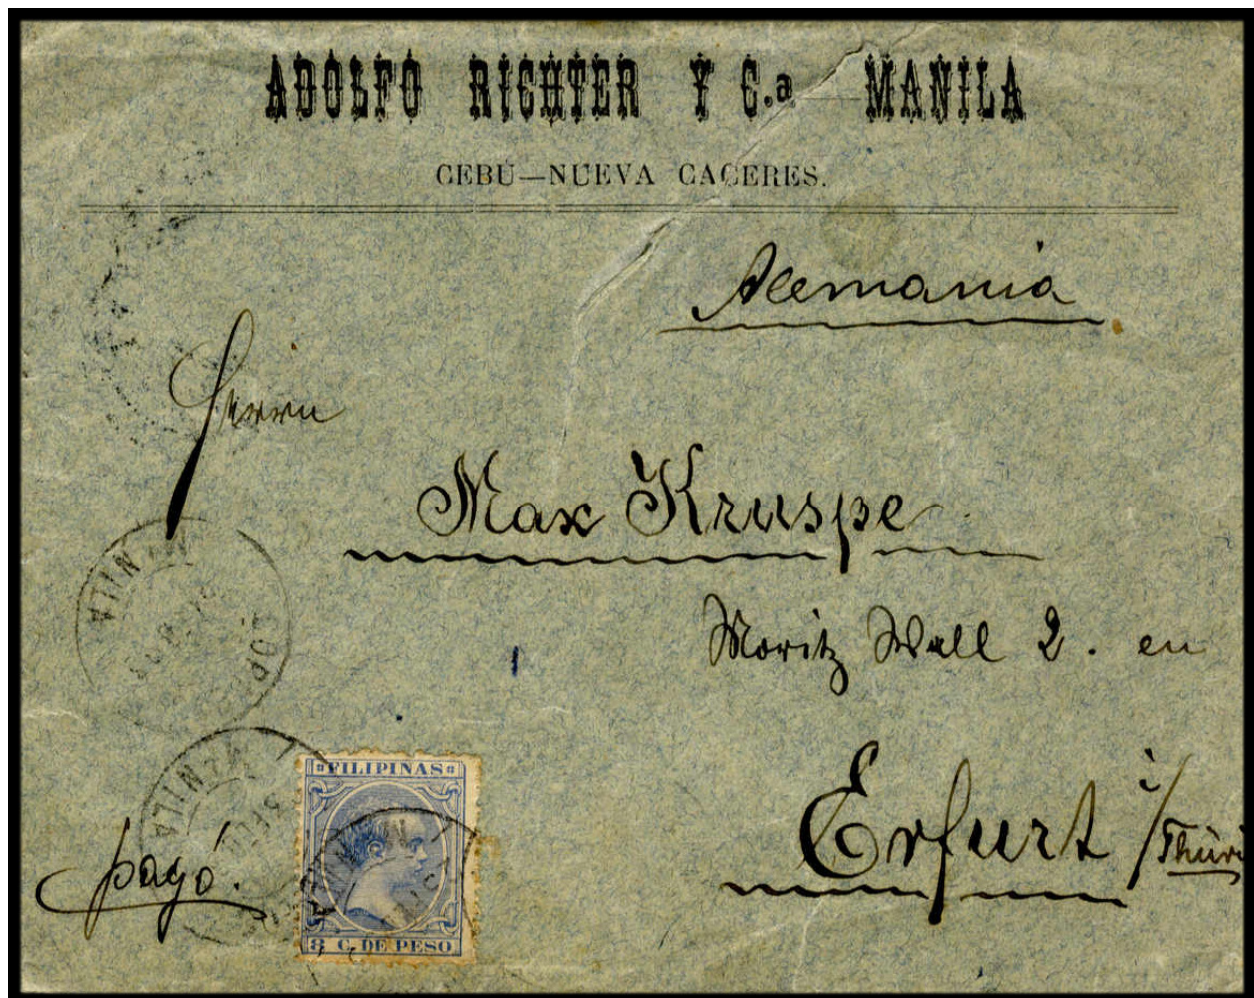 ADOLFO RICHTER Y C.a MANILA
CEBÚ—NUEVA CACERES.
Alemania
Herrn
Max Kruspe
Moritz Wall 2. en
Erfurt i/Thüri
pagó.
MANILA
MANILA
FILIPINAS
MANILA
8 C. DE PESO